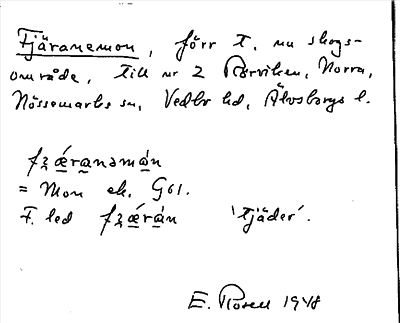 Fjäranemon, förr T, nu skogs-
område, till nr 2 Rörviken, Norra,
Nössemarks sn, Vedbo hd, Älvsborgs l.
= Mon ek. G61.
F. led 'tjäder'.
E. Rosell 1948